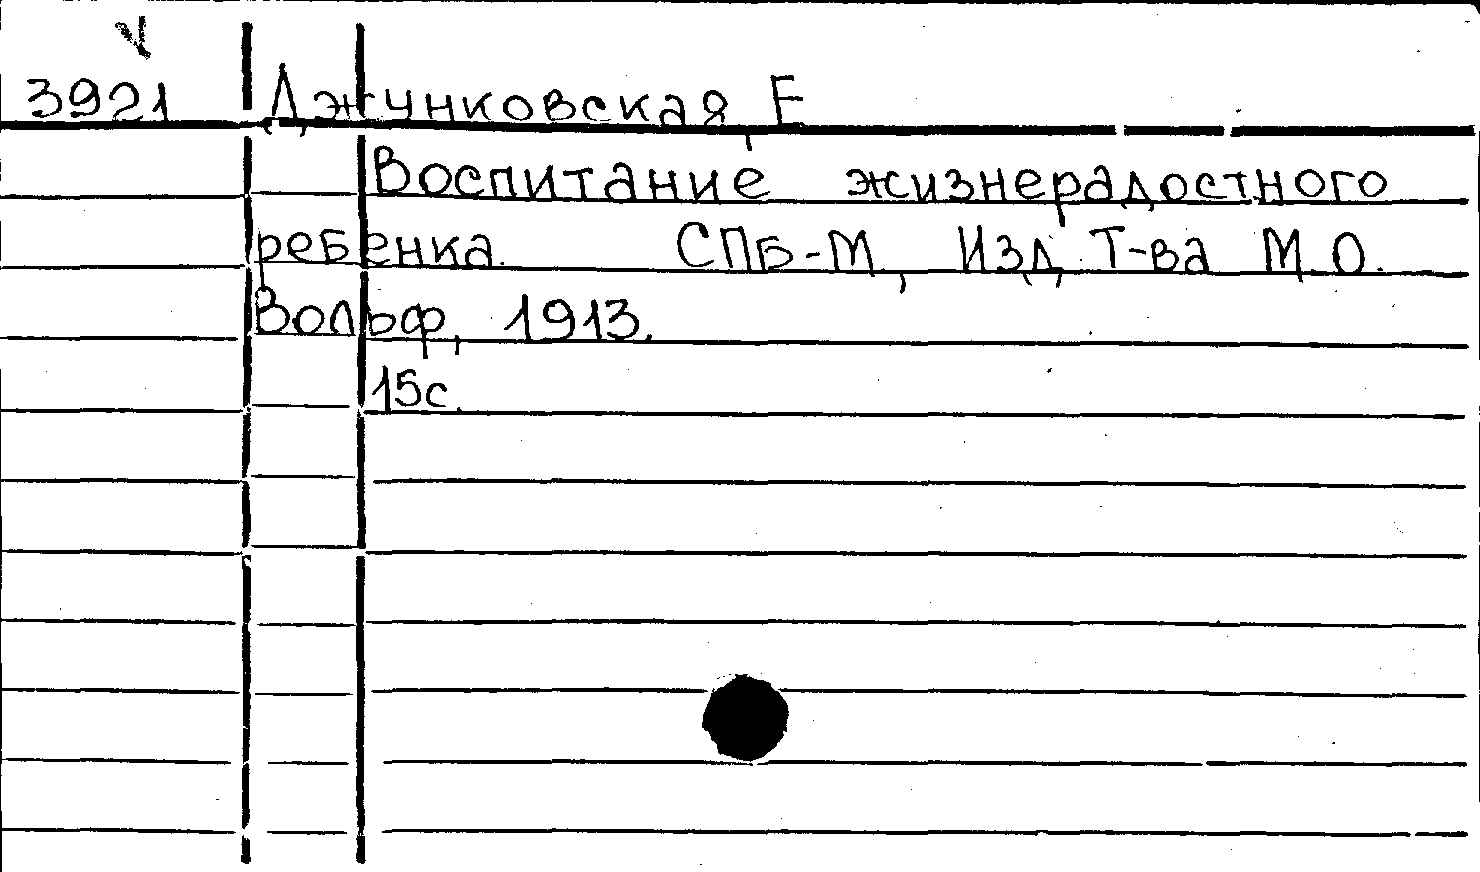 V
3921 Джунковская, Е
Воспитание жизнерадостного
ребенка. СПБ-М., Изд. Т-ва М.О.
Вольф, 1913.
15с.